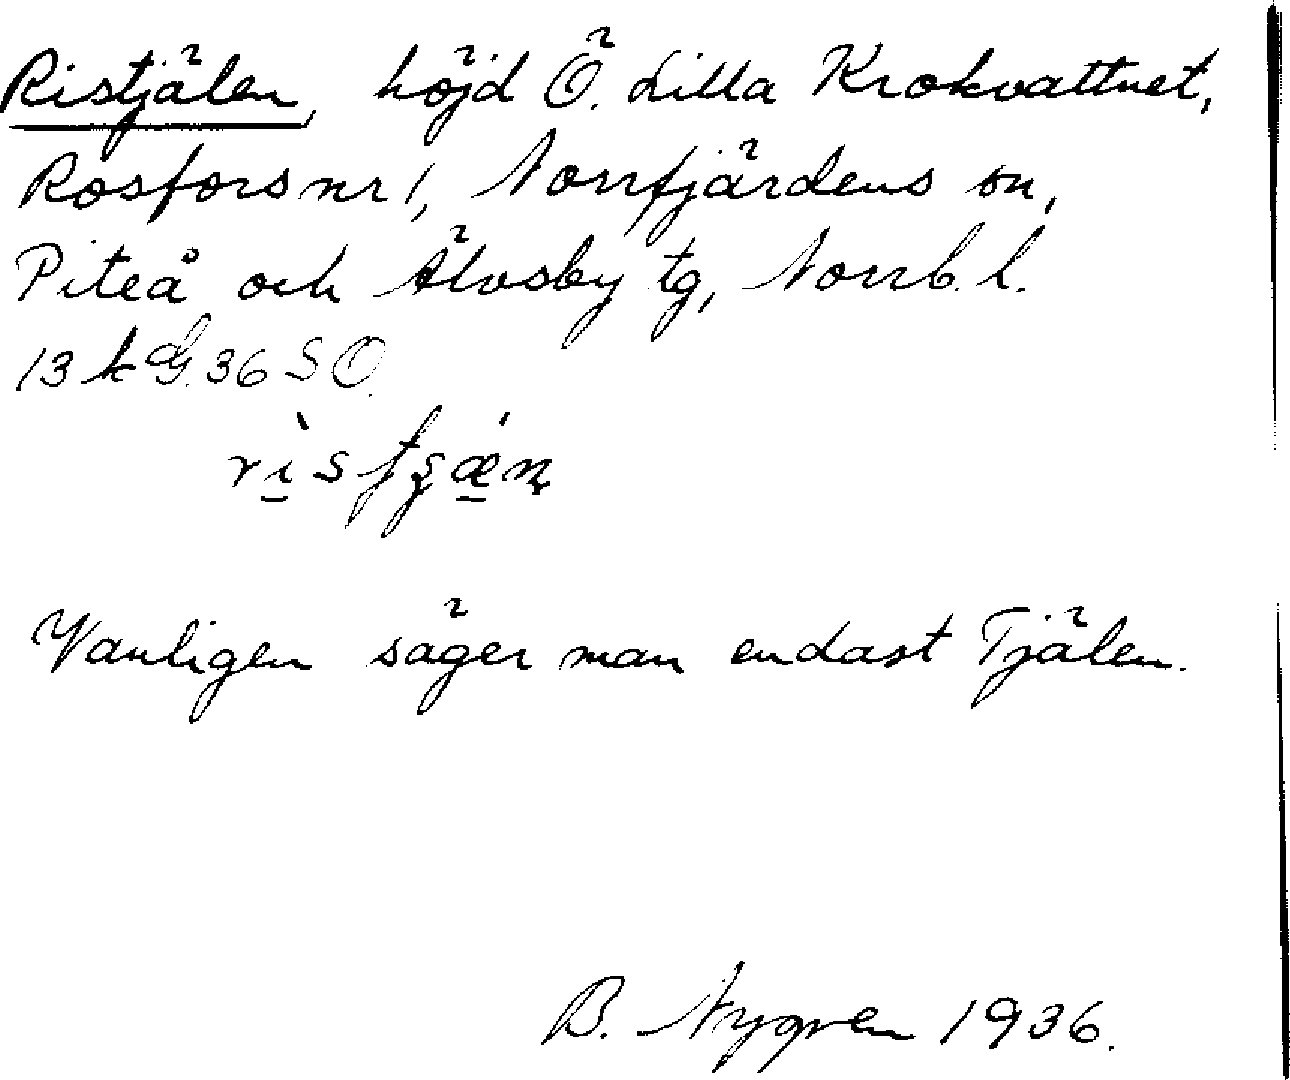 Ristjälen, höjd Ö. Lilla Krokvattnet,
Rosfors nr 1, Norrfjärdens sn,
Piteå och Älvsby tg, Norrb. l.
13 k G. 36 SO.
Vanligen säger man endast Tjälen.
B. Nygren 1936.